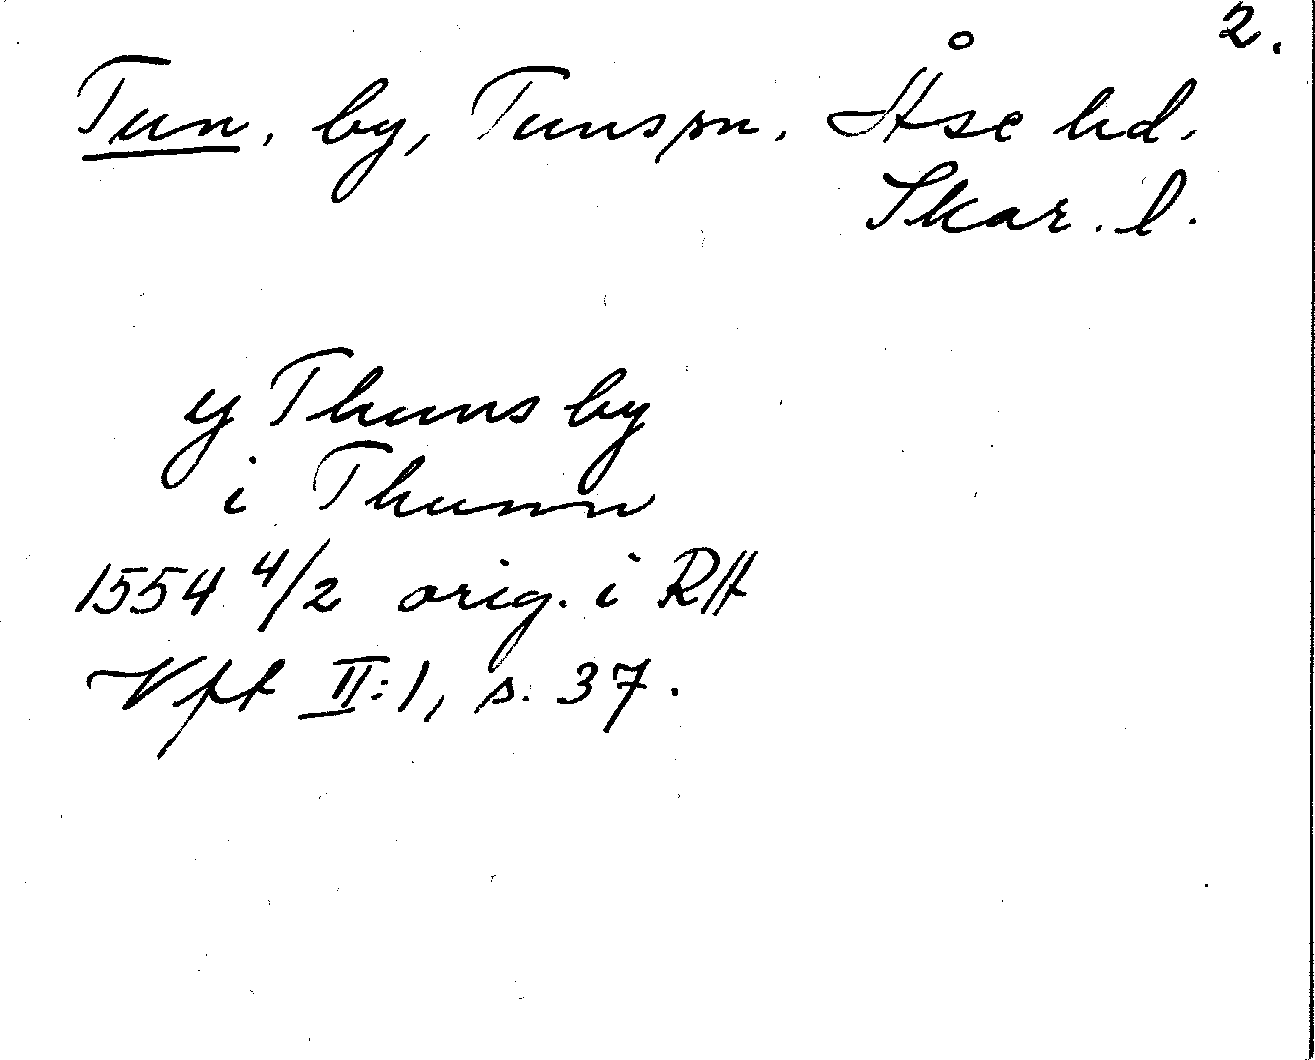 2.
Tun, by, Tuns sn. Åse hd.
Skar. l.
y Thuns by
i Thunn
1554 4/2 orig. i RA
Vft II:1, s. 37.